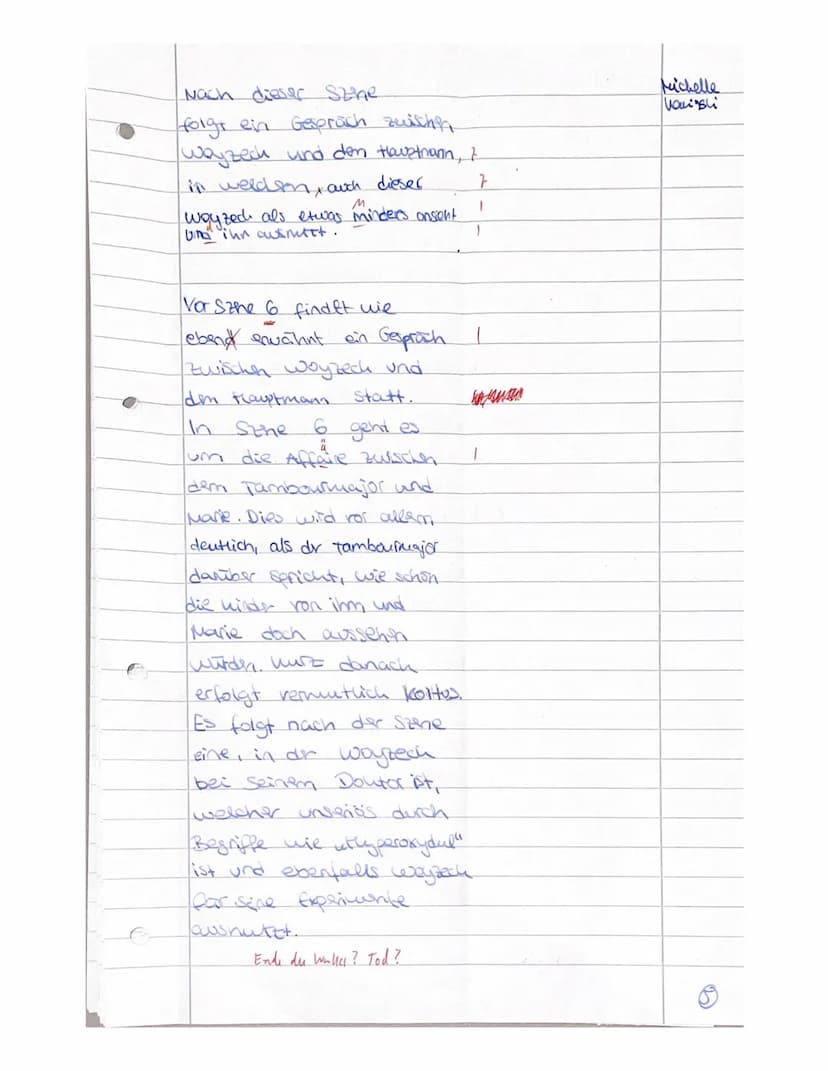 Nach dieser Szene
folgt ein Gespräch zwischen
Woyzeck und den Hauptmann, 7
in welchem, auch dieser 7
M
Woyzeck als etwas minders ansieht |
und ihn ausnutzt. |
Vor Szene 6 findet wie
ebend erwähnt ein Gespräch |
zwischen Woyzeck und
dem Hauptmann statt.
In Szene 6 geht es
ä
um die Affaire zwischen |
dem Tambourmajor und
Marie. Dies wird vor allem
deutlich, als der Tambourmajor
darüber spricht, wie schön
die Kinder von ihm und
Marie doch aussehen
würden. Kurz danach
erfolgt vermutlich Koitus.
Es folgt nach der Szene
eine, in der Woyzeck
bei seinem Doktor ist,
welcher unseriös durch
Begriffe wie „Hyperoxydul“
ist und ebenfalls Woyzeck
für seine Experimente
ausnutzt.
Ende des Tod?
Michelle
5